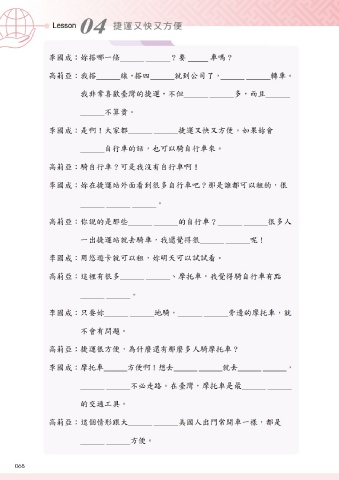 Lesson 04 捷運又快又方便
李國成：妳搭哪一條____ ____？要____車嗎？
高莉亞：我搭____線，搭四____就到公司了，____ ____轉車。
我非常喜歡臺灣的捷運，不但____ ____多，而且____
____不算貴。
李國成：是啊！大家都____ ____捷運又快又方便。如果妳會
____自行車的話，也可以騎自行車來。
高莉亞：騎自行車？可是我沒有自行車啊！
李國成：妳在捷運站外面看到很多自行車吧？那是誰都可以租的，很
____ ____ ____。
高莉亞：你說的是那些____ ____的自行車？____ ____很多人
一出捷運站就去騎車，我還覺得很____ ____呢！
李國成：用悠遊卡就可以租，妳明天可以試試看。
高莉亞：這裡有很多____ ____、摩托車，我覺得騎自行車有點
____ ____。
李國成：只要妳____ ____地騎，____ ____旁邊的摩托車，就
不會有問題。
高莉亞：捷運很方便，為什麼還有那麼多人騎摩托車？
李國成：摩托車____方便啊！想去____ ____就去____ ____，
____ ____不必走路。在臺灣，摩托車是最____ ____
的交通工具。
高莉亞：這個情形跟大____ ____美國人出門常開車一樣，都是
____ ____方便。
068